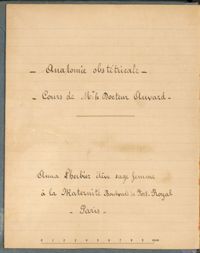 - Anatomie obstétricale -
- Cours de Mr le Docteur Auvard -
Anna Lherbier élève sage femme
à la Maternité Boulevard de Port-Royal
- Paris -